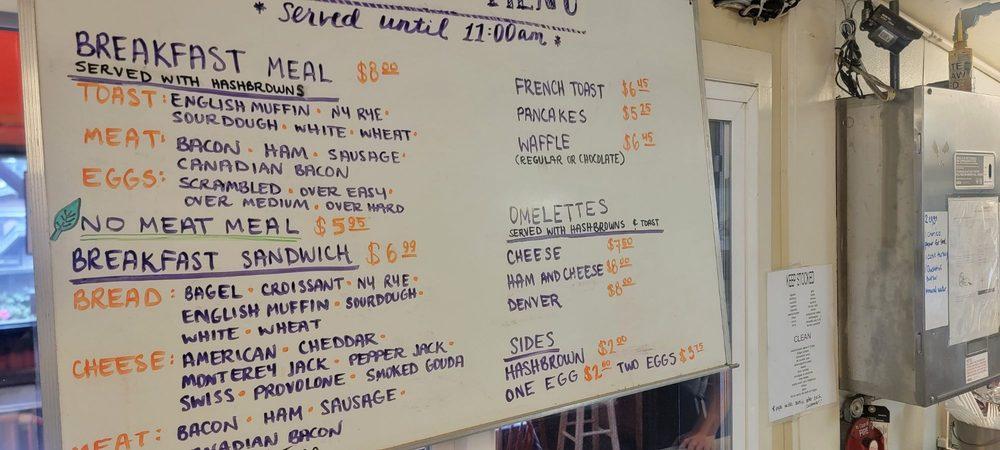 MENU
* Served until 11:00am *
BREAKFAST MEAL $8.00
SERVED WITH HASHBROWNS
TOAST: ENGLISH MUFFIN • NY RYE •
SOURDOUGH • WHITE • WHEAT •
MEAT: BACON • HAM • SAUSAGE •
CANADIAN BACON
EGGS: SCRAMBLED • OVER EASY •
OVER MEDIUM • OVER HARD
NO MEAT MEAL $5.95
BREAKFAST SANDWICH $6.99
BREAD: BAGEL • CROISSANT • NY RYE •
ENGLISH MUFFIN • SOURDOUGH •
WHITE • WHEAT
CHEESE: AMERICAN • CHEDDAR •
MONTEREY JACK • PEPPER JACK •
SWISS • PROVOLONE • SMOKED GOUDA
MEAT: BACON • HAM • SAUSAGE •
CANADIAN BACON
FRENCH TOAST $6.45
PANCAKES $5.25
WAFFLE $6.45
(REGULAR OR CHOCLATE)
OMELETTES
SERVED WITH HASHBROWNS & TOAST
CHEESE $7.50
HAM AND CHEESE $8.00
DENVER $8.00
SIDES
HASHBROWN $2.00
ONE EGG $2.00 TWO EGGS $3.75
KEEP STOCKED
CLEAN